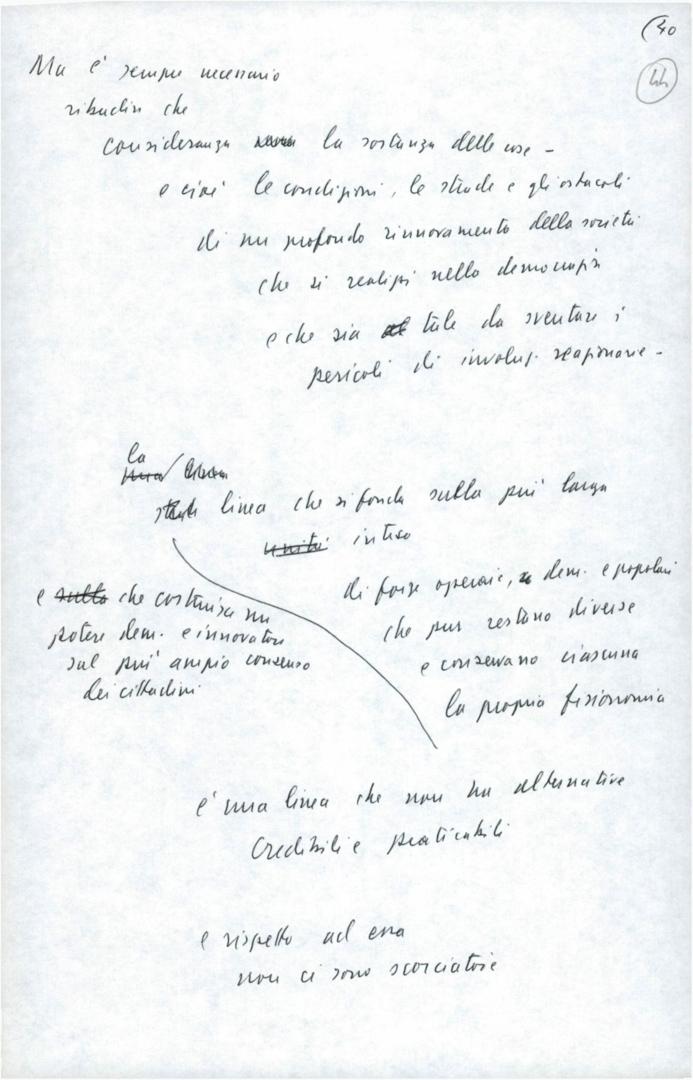 (40
44
Ma è sempre necessario
ribadire che
consideranza la sostanza delle cose -
e cioè le condizioni, le strade e gli ostacoli
di un profondo rinnovamento della società
che si realizzi nella democrazia
e che sia tale da sventare i
pericoli di involuz. reazionarie -
la
linea che si fonda sulla più larga
unità intesa
di forze operaie, dem. e popolari
che pur restano diverse
e conservano ciascuna
la propria fisionomia
e sulla che costruisca un
potere dem. e innovatore
sul più ampio consenso
dei cittadini
è una linea che non ha alternative
credibili e praticabili
e rispetto ad essa
non ci sono scorciatoie